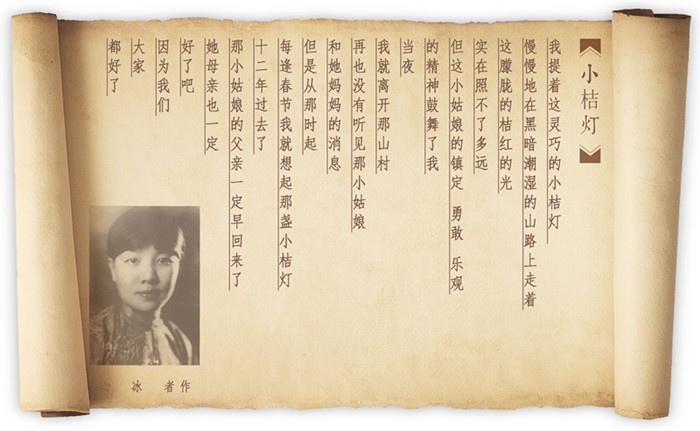 小桔灯
我提着这灵巧的小桔灯
慢慢地在黑暗潮湿的山路上走着
这朦胧的桔红的光
实在照不了多远
但这小姑娘的镇定 勇敢 乐观
的精神鼓舞了我
当夜
我就离开那山村
再也没有听见那小姑娘
和她妈妈的消息
但是从那时起
每逢春节我就想起那盏小桔灯
十二年过去了
那小姑娘的父亲一定早回来了
她母亲也一定
好了吧
因为我们
大家
都好了
作者 冰